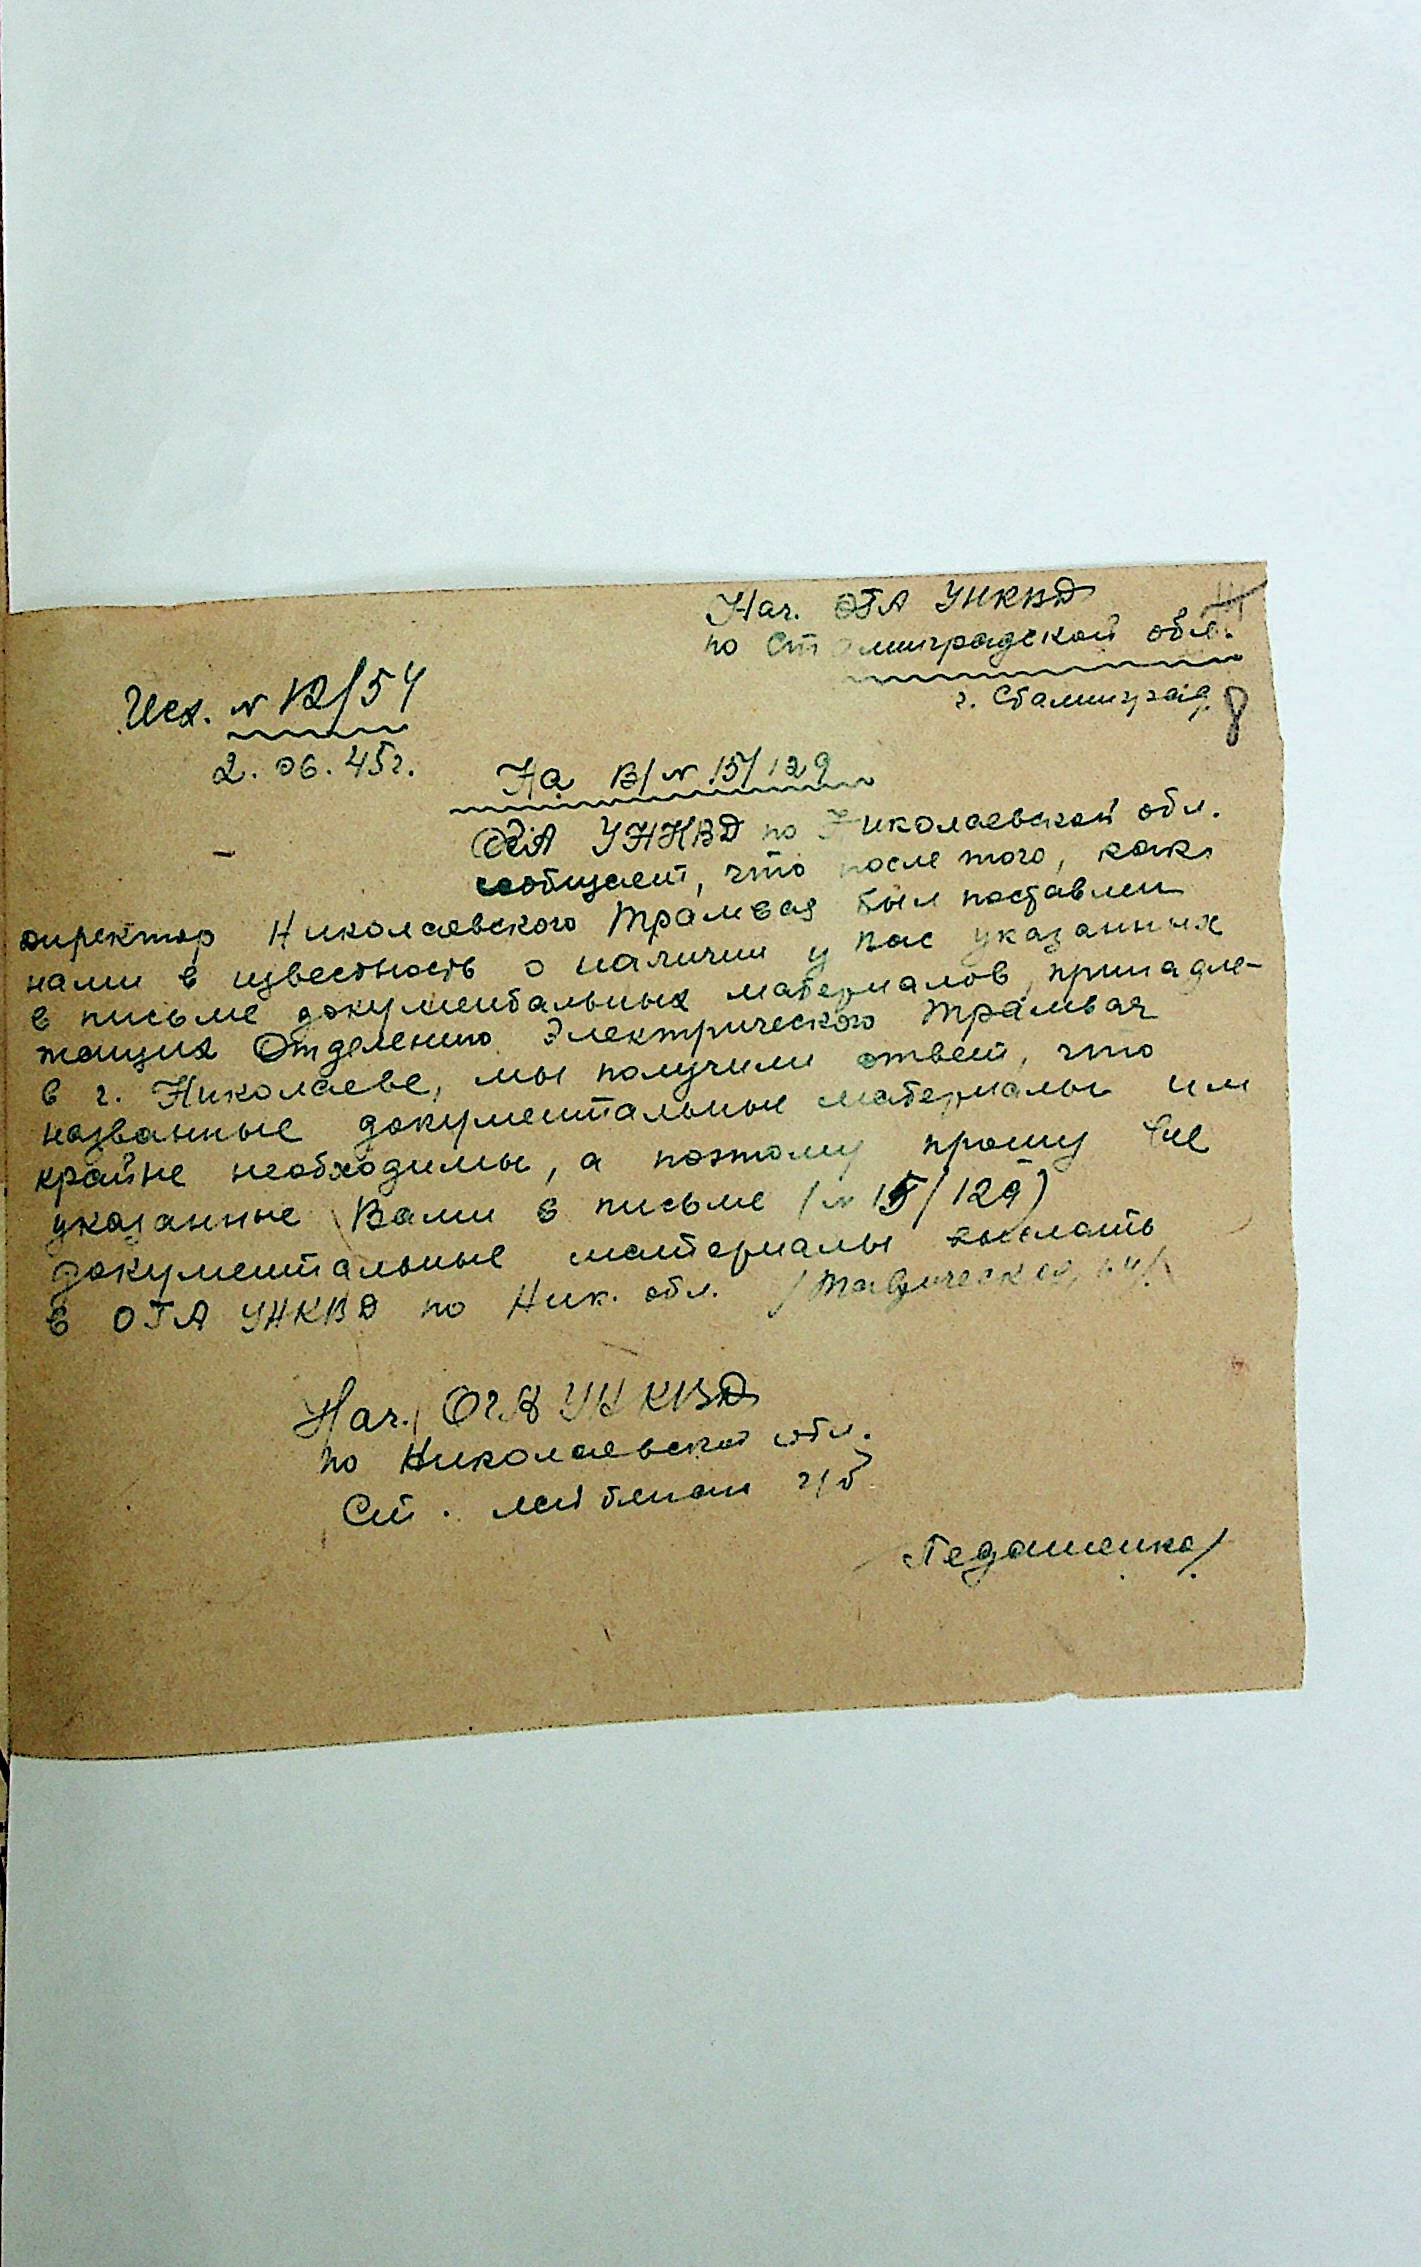 Нач. ОГА УНКВД
по Сталинградской обл.
г. Сталинград
8
Исх. № 12/54
2. 06. 45 г.
На В/№ 15/129
ОГА УНКВД по Николаевской обл.
сообщает, что после того, как
директор Николаевского Трамвая был поставлен
нами в известность о наличии у Вас указанных
в письме документальных материалов, принадле-
жащих Отделению Электрического Трамвая
в г. Николаеве, мы получили ответ, что
названные документальные материалы им
крайне необходимы, а поэтому прошу все
указанные Вами в письме (№ 15/129)
документальные материалы выслать
в ОГА УНКВД по Ник. обл. /Таврическая,
Нач. ОГА УНКВД
по Николаевской обл.
Ст. лейтенант г/б